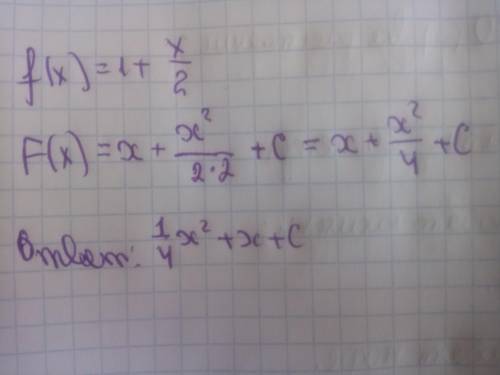 f(x) = 1 + x/2
F(x) = x + x²/2·2 + C = x + x²/4 + C
Ответ: 1/4 x² + x + C